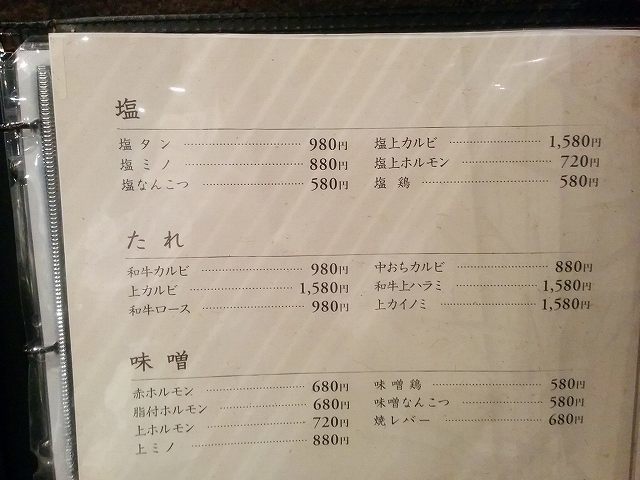 塩
塩 タ ン 980円
塩 ミ ノ 880円
塩なんこつ 580円
塩上カルビ 1,580円
塩上ホルモン 720円
塩 鶏 580円
た れ
和牛カルビ 980円
上カルビ 1,580円
和牛ロース 980円
中おちカルビ 880円
和牛上ハラミ 1,580円
上カイノミ 1,580円
味 噌
赤ホルモン 680円
脂付ホルモン 680円
上ホルモン 720円
上ミノ 880円
味 噌 鶏 580円
味噌なんこつ 580円
焼レバー 680円